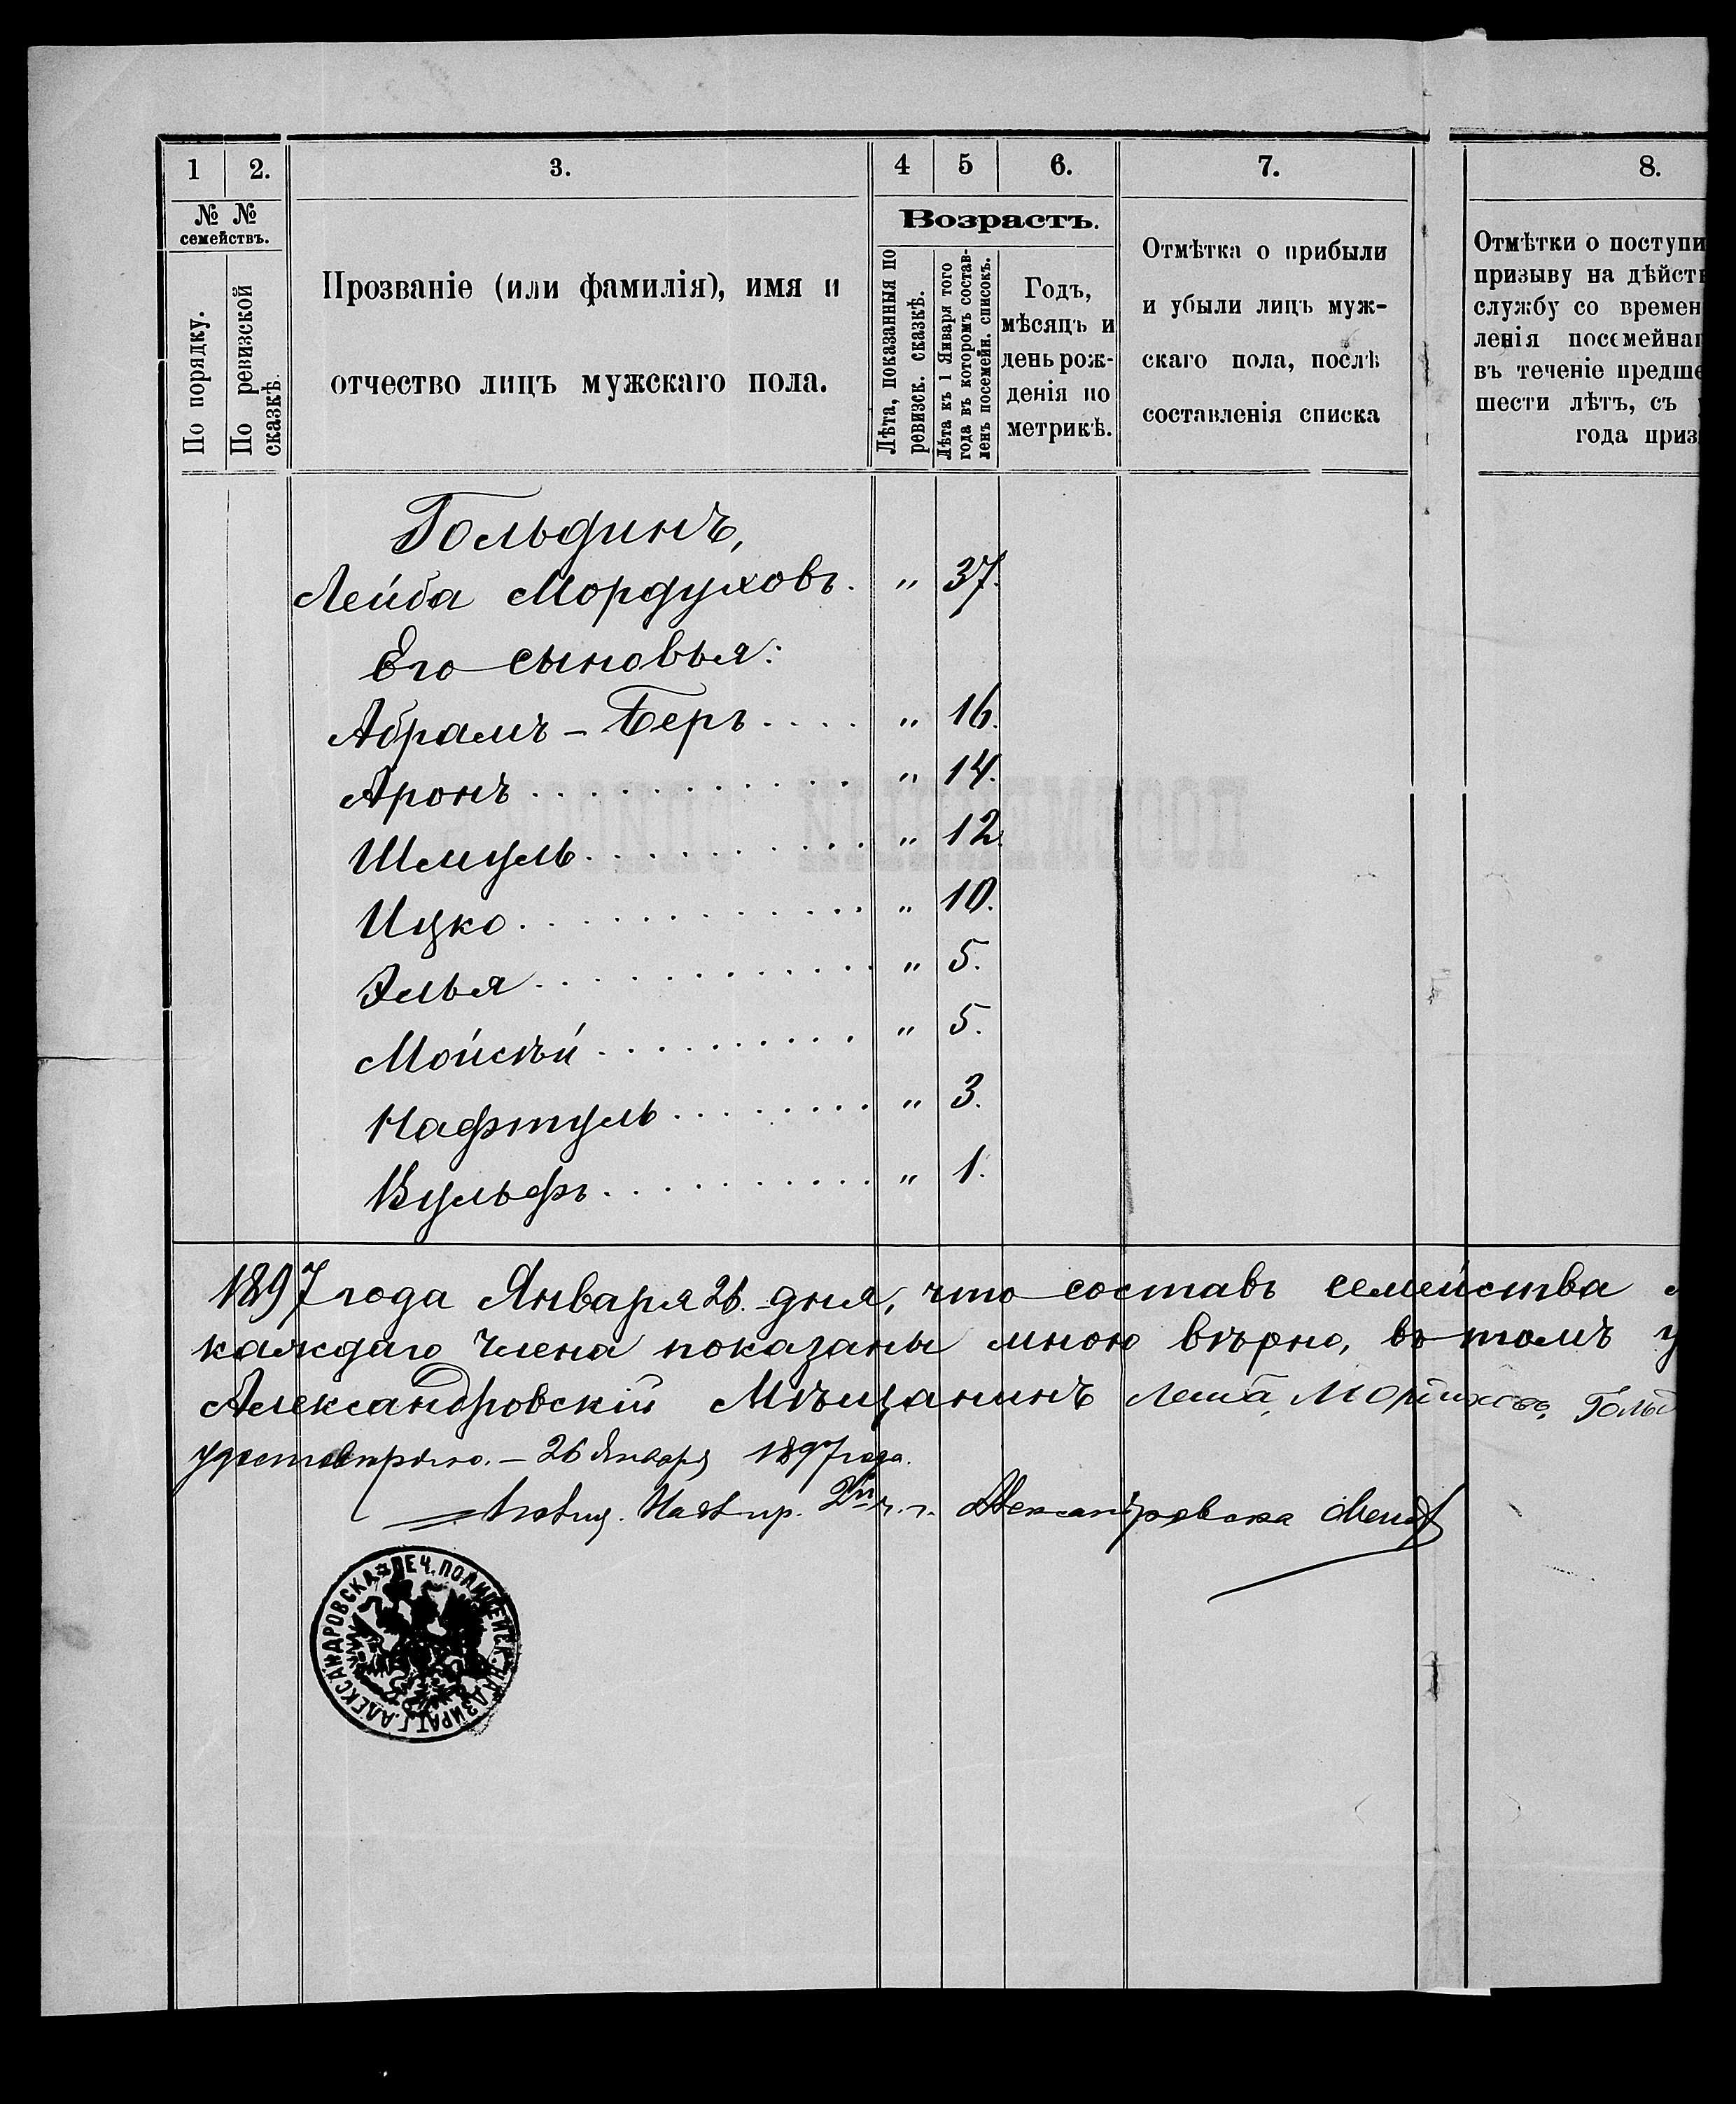 1 2. 3. 4 5 6. 7. 8.
№ № семействъ.
По порядку.
По ревизской сказкѣ.
Прозваніе (или фамилія), имя и
отчество лицъ мужскаго пола.
Возрастъ.
Лѣта, показанныя по
ревизск. сказкѣ.
Лѣта къ 1 Января того
года въ которомъ состав-
ленъ посемейн. списокъ.
Годъ,
мѣсяцъ и
день рож-
денія по
метрикѣ.
Отмѣтка о прибыли
и убыли лицъ муж-
скаго пола, послѣ
составленія списка
Отмѣтки о поступи
призыву на дѣйств
службу со времен
ленія посемейнаг
въ теченіе предше
шести лѣтъ, съ
года приз
Гольдинъ,
Лейба Мордуховъ. " 37.
Его сыновья:
Абрамъ - Беръ .... " 16.
Аронъ ........... " 14.
Шмуль .......... " 12.
Ицко ............ " 10.
Элья ............ " 5.
Мойсѣй ......... " 5.
Нафтуль ........ " 3.
Вульфъ .......... " 1.
1897 года Января 26 дня, что составъ семейства
каждаго члена показаны мною вѣрно, въ томъ у
Александровскій Мѣщанинъ Лейба Мордуховъ Гольд
удостовѣряю. - 26 Января 1897 года.
Полиц. Надзир. 2й ч. г. Александровска
ПЕЧ. ПОЛИЦЕЙСК. НАДЗИРАТ. Г. АЛЕКСАНДРОВСКА
ПОСЕМЕЙНЫЙ СПИСОКЪ